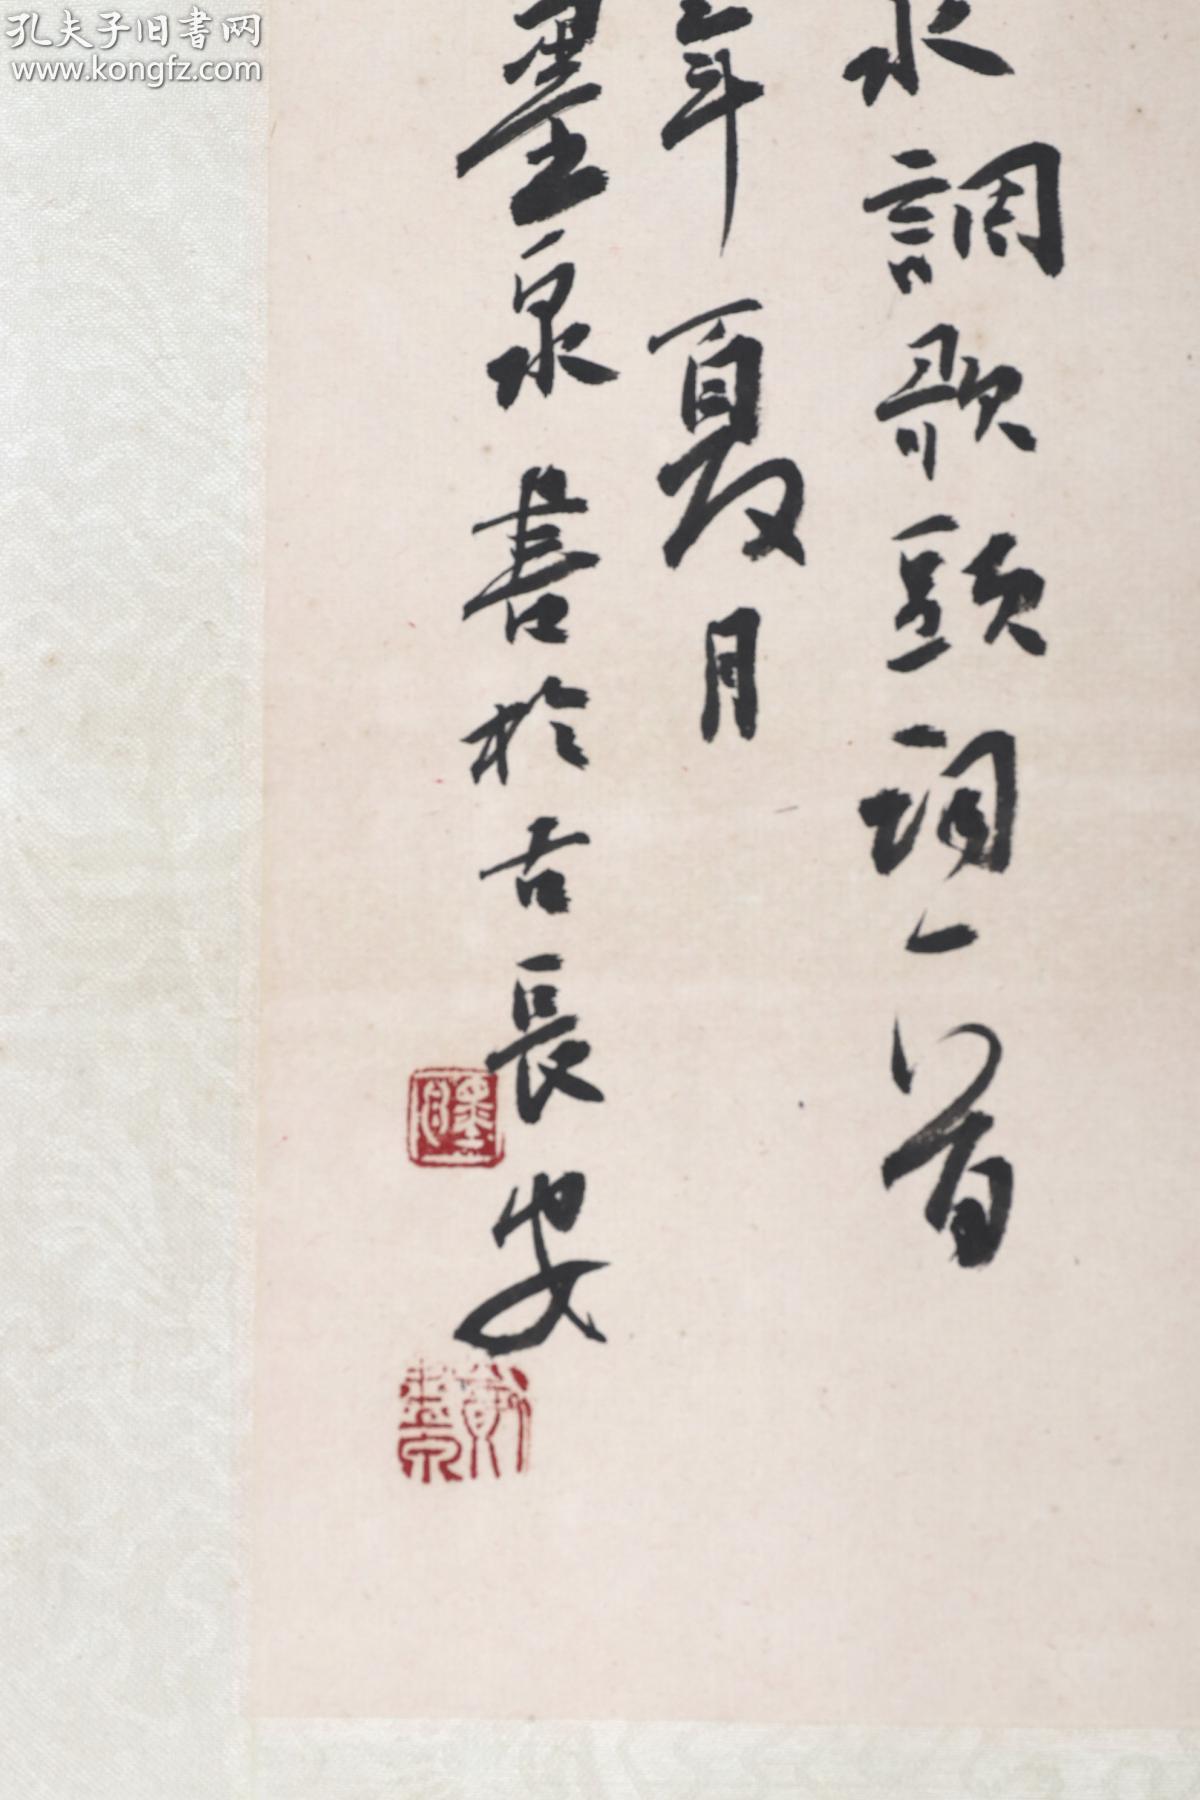 孔夫子旧書网
www.kongfz.com
水調歌頭詞一首
年夏月
墨泉書於古長安